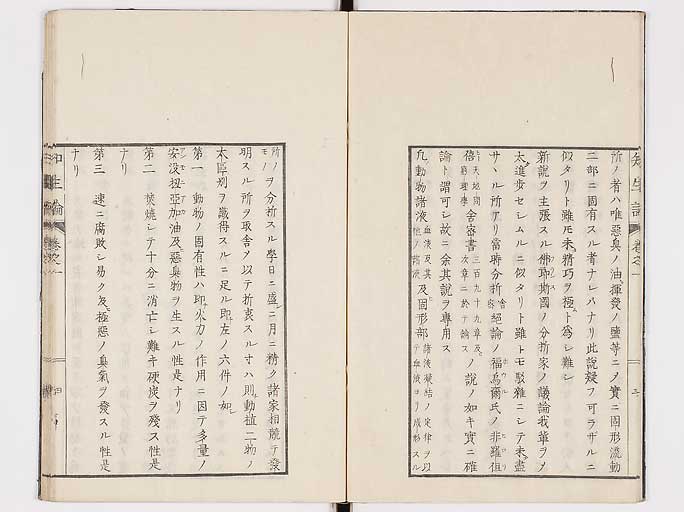 所ノ者ハ唯惡臭ノ油揮發ノ鹽等ニノ實ニ固形流動
二部ニ固有スル者ナレハナリ此説疑フ可ラザルニ
似タリト雖モ未精巧ヲ極ト為シ難シ
新説ヲ主張スル佛郎斯國ノ分折家ノ議論我輩ヲメ
太進歩セシムルニ似タリト雖トモ駁雜ニシテ未盡
サヽル所アリ當時分折舍密絕論ノ福烏爾氏ノ非羅値
倍舍密書三百九十九章及ノ説ノ如キ實ニ確
論ト謂可シ故ニ余其説ヲ専用ス
凡動物諸液血液及其他ノ諸液及固形部諸液凝結ノ定律ヲ以テ血液ヨリ成形スル
所ノモノヲ分折スル學日ニ盛ニ月ニ精ク諸家相競テ發
明スル所ヲ取舍ヲ以テ折衷スル寸ハ則動植二物ノ
大區別ヲ識得スルニ足ル即左ノ六件ノ如
第一 動物ノ固有性ハ即火力ノ作用ニ因テ多量ノ
安没扭亞加油及惡臭物ヲ生スル性是ナリ
第二 焚燒シテ十分ニ消亡シ難キ硬炭ヲ殘ス性是
ナリ
第三 速ニ腐敗シ易ク及極惡ノ臭氣ヲ發スル性是
ナリ